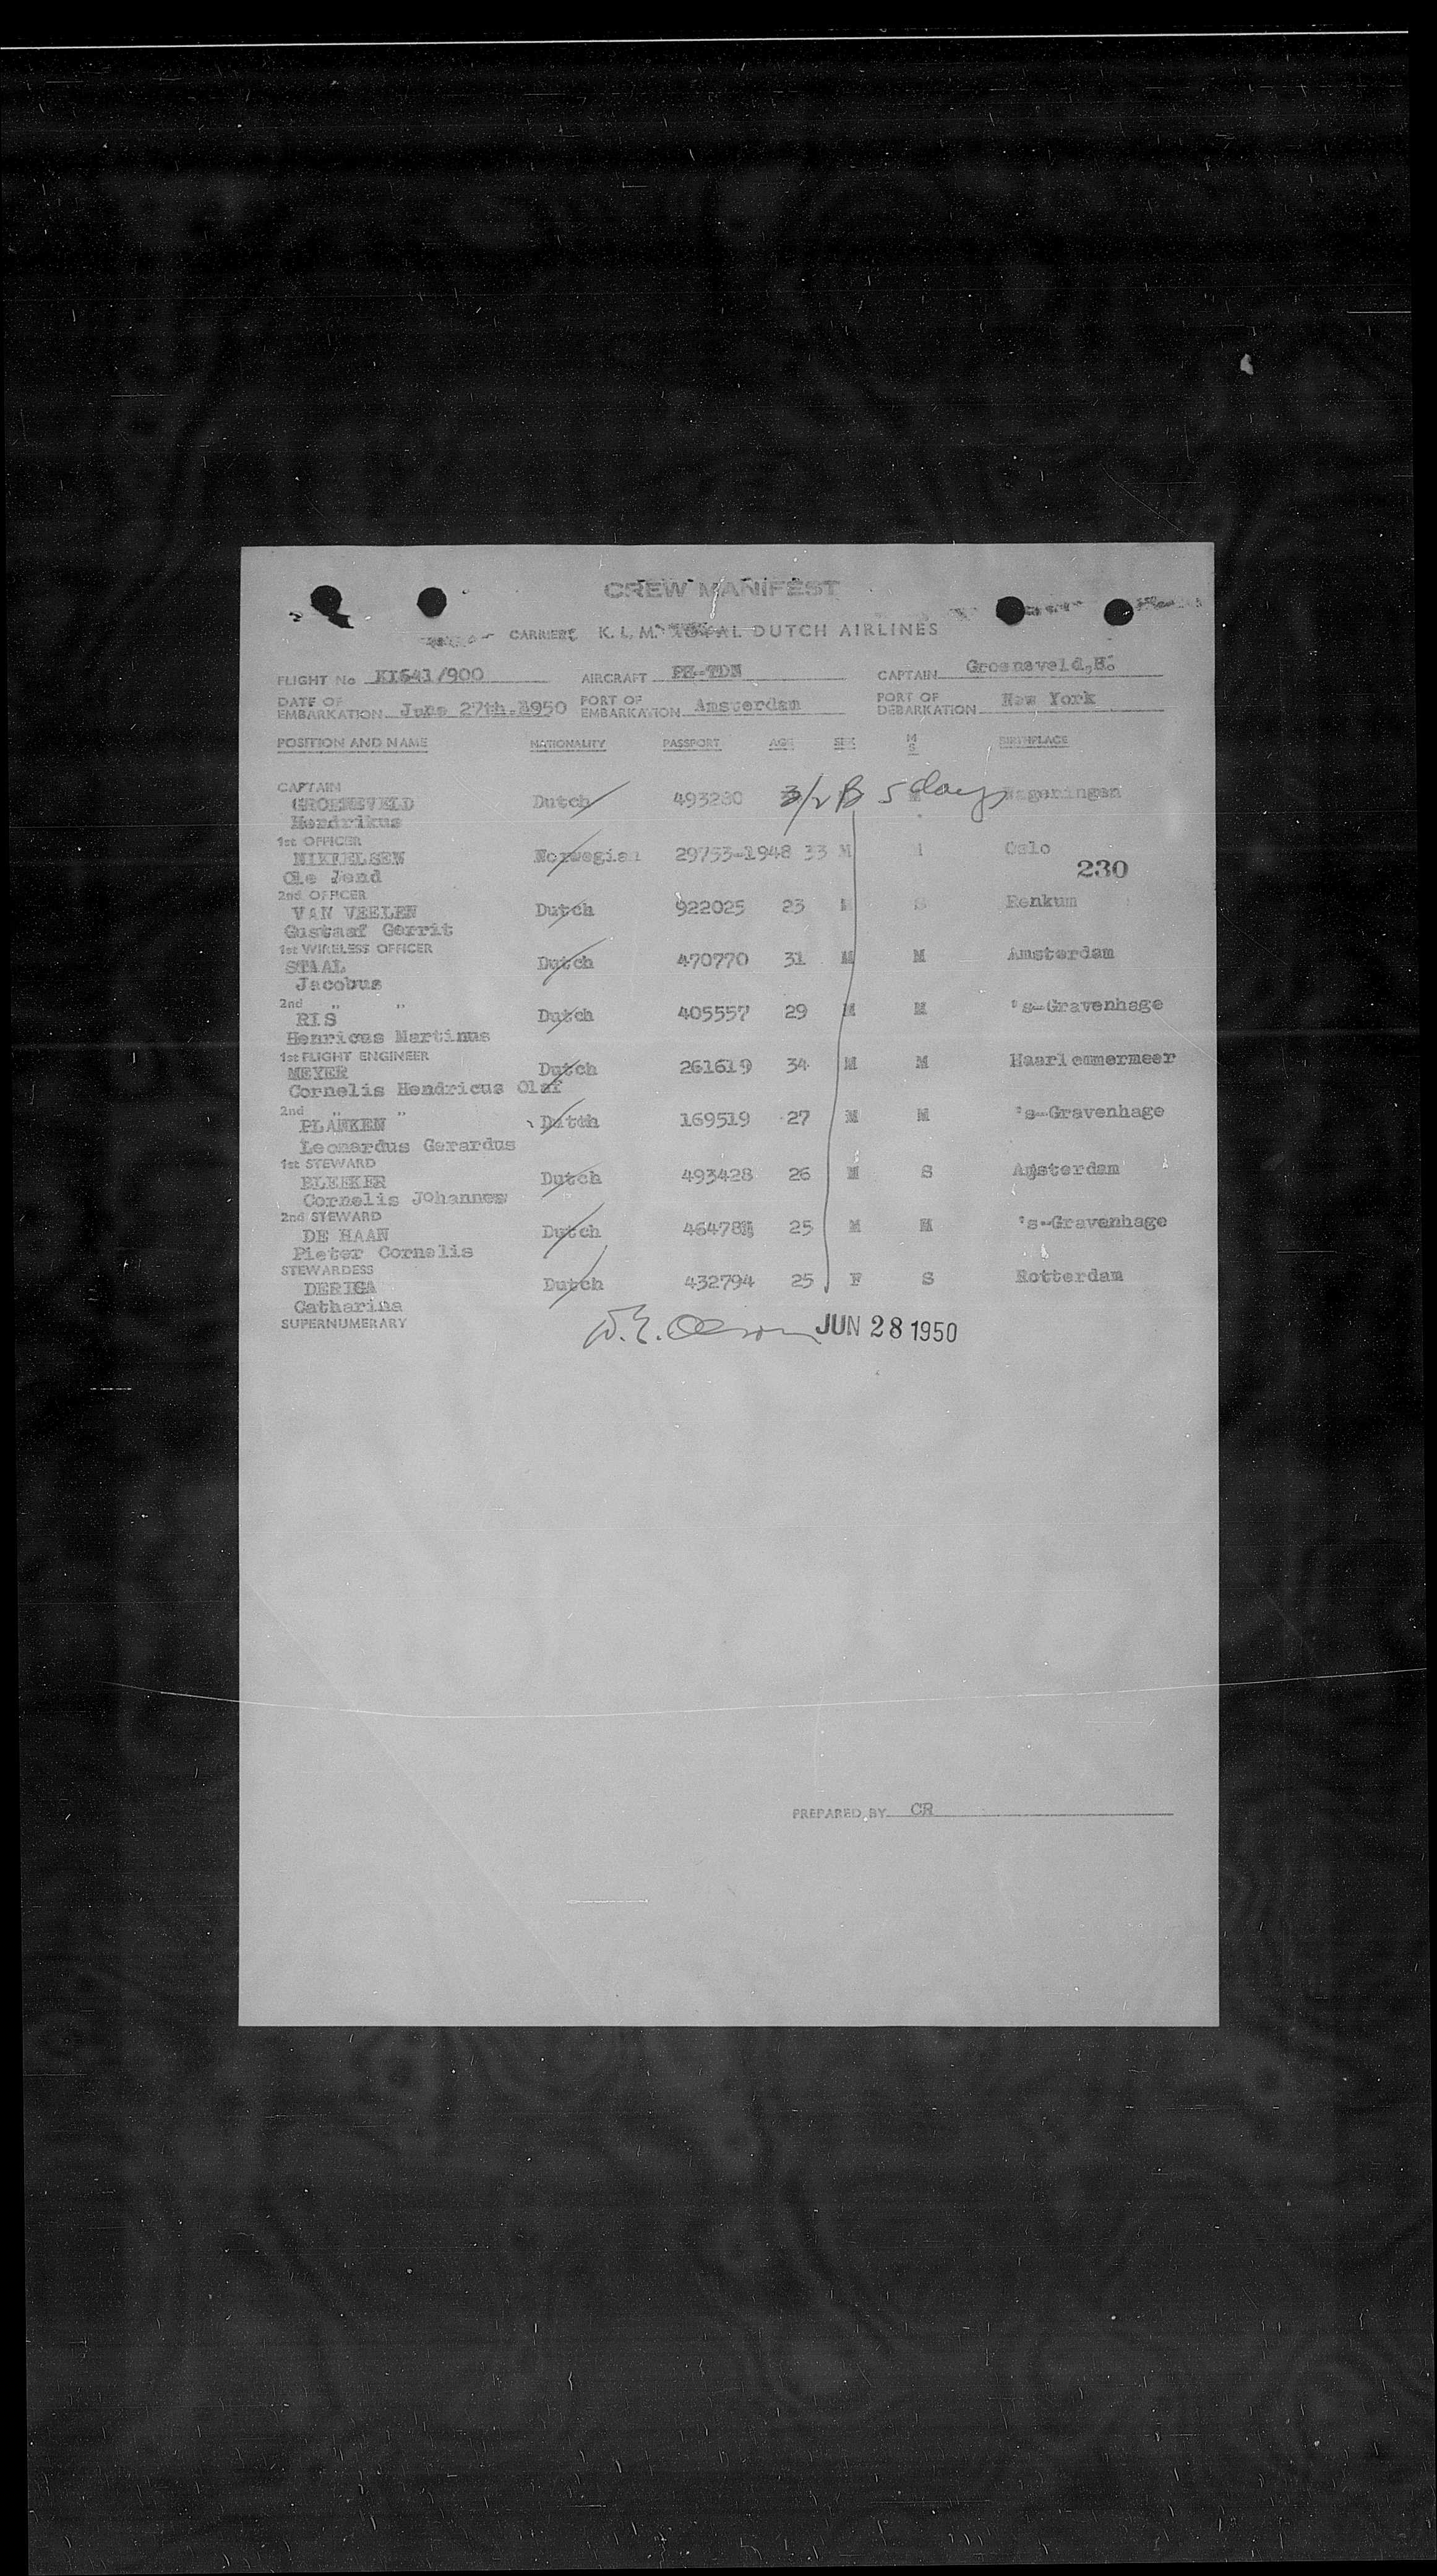 CREW MANIFEST
CARRIER: K. L. M. ROYAL DUTCH AIRLINES
FLIGHT No KL641/900 AIRCRAFT PH-TDN CAPTAIN Groeneveld,H.
DATE OF EMBARKATION June 27th.1950 PORT OF EMBARKATION Amsterdam PORT OF DEBARKATION New York
POSITION AND NAME NATIONALITY PASSPORT AGE SEX M S BIRTHPLACE
CAPTAIN
GROENEVELD Dutch 493280 3/2 B 5 days Wageningen
Hendrikus
1st OFFICER
MIKKELSEN Norwegian 29753-1948 33 M M Oslo
Ole Jend
230
2nd OFFICER
VAN VEELEN Dutch 922025 23 M S Renkum
Gustaaf Gerrit
1st WIRELESS OFFICER
STAAL Dutch 470770 31 M M Amsterdam
Jacobus
2nd " "
RIS Dutch 405557 29 M M 's-Gravenhage
Henricus Martinus
1st FLIGHT ENGINEER
MEYER Dutch 261619 34 M M Haarlemmermeer
Cornelis Hendricus Olaf
2nd " "
PLANKEN Dutch 169519 27 M M 's-Gravenhage
Leonardus Gerardus
1st STEWARD
BLEEKER Dutch 493428 26 M S Amsterdam
Cornelis Johannes
2nd STEWARD
DE HAAN Dutch 25 M M 's-Gravenhage
Pieter Cornelis
STEWARDESS
DERIGA Dutch 432794 25 F S Rotterdam
Catharina
SUPERNUMERARY
W.E. Olson JUN 28 1950
PREPARED BY CR